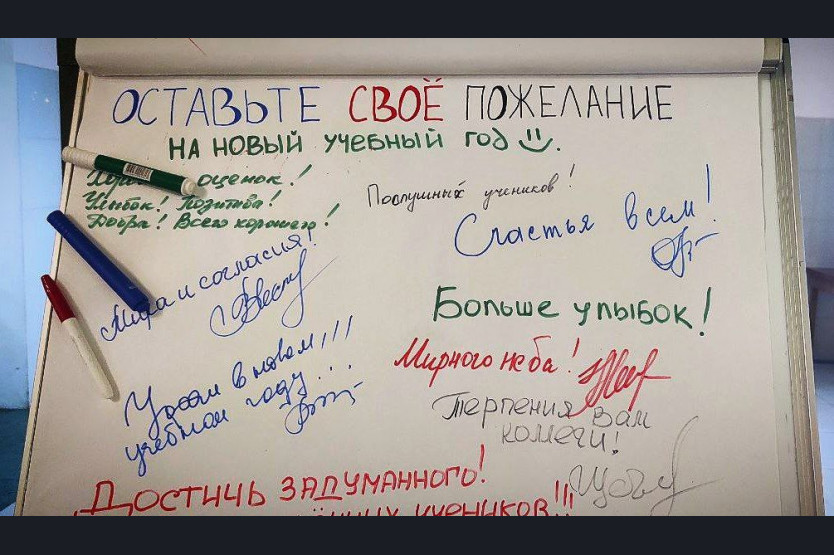 ОСТАВЬТЕ СВОЁ ПОЖЕЛАНИЕ
НА НОВЫЙ УЧЕБНЫЙ ГОД
оценок!
Улыбок! Позитива!
Добра! Всего хорошего!
Послушных учеников!
Счастья всем!
Мира и согласия!
Больше улыбок!
Мирного неба!
в новом!!!
учебном году...
Терпения Вам
коллеги!
ДОСТИЧЬ ЗАДУМАННОГО!
УЧЕНИКОВ!!!